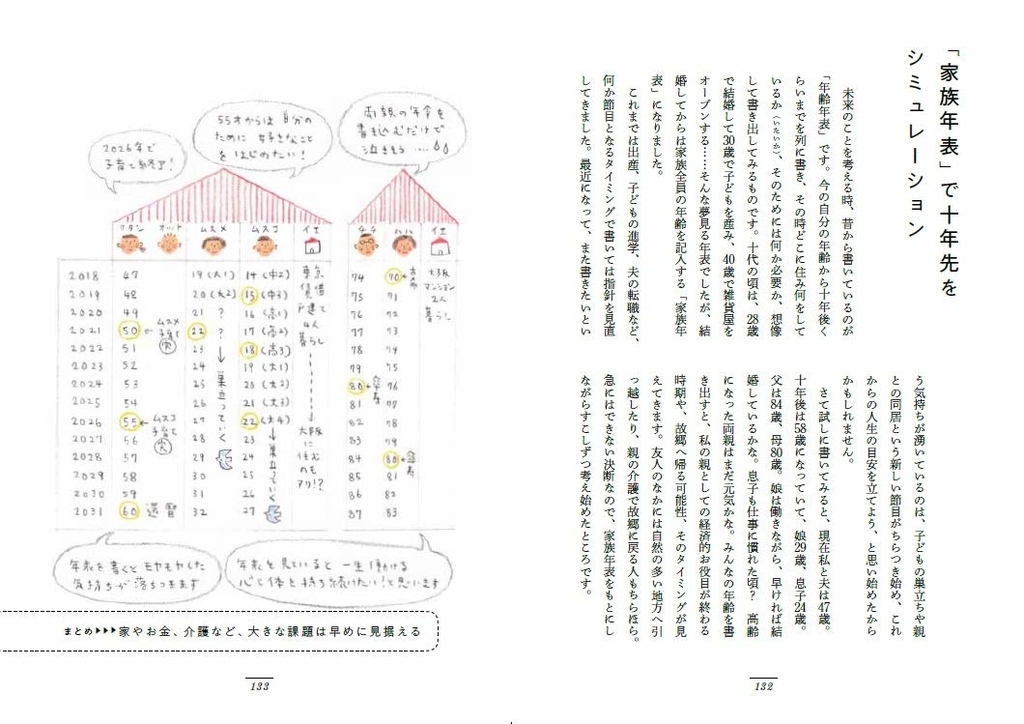 「家族年表」で十年先を
シミュレーション
未来のことを考える時、昔から書いているのが
「年齢年表」です。今の自分の年齢から十年後く
らいまでを列に書き、その時どこに住み何をして
いるか（いたいか）、そのためには何か必要か、想像
して書き出してみるものです。十代の頃は、28歳
で結婚して30歳で子どもを産み、40歳で雑貨屋を
オープンする……そんな夢見る年表でしたが、結
婚してからは家族全員の年齢を記入する「家族年
表」になりました。
これまでは出産、子どもの進学、夫の転職など、
何か節目となるタイミングで書いては指針を見直
してきました。最近になって、また書きたいとい
う気持ちが湧いているのは、子どもの巣立ちや親
との同居という新しい節目がちらつき始め、これ
からの人生の目安を立てよう、と思い始めたから
かもしれません。
さて試しに書いてみると、現在私と夫は47歳。
十年後は58歳になっていて、娘29歳、息子24歳。
父は84歳、母80歳。娘は働きながら、早ければ結
婚しているかな。息子も仕事に慣れた頃？　高齢
になった両親はまだ元気かな。みんなの年齢を書
き出すと、私の親としての経済的お役目が終わる
時期や、故郷へ帰る可能性、そのタイミングが見
えてきます。友人のなかには自然の多い地方へ引
っ越したり、親の介護で故郷に戻る人もちらほら。
急にはできない決断なので、家族年表をもとにし
ながらすこしずつ考え始めたところです。
132
2026年で
子育て終了！
55才からは自分の
ために 好きなこと
をはじめたい！
両親の年令を
書き込むだけで
泣きそう….
ワタシ オット ムスメ ムスコ イエ チチ ハハ イエ
2018 47 19(大1) 14(中2) 74 70 古希
2019 48 20(大2) 15(中3) 75 71
2020 49 21 ? 16(高1) 76 72
2021 50 ← ムスメ子育て終 22 ? 17(高2) 77 73
2022 51 23 18(高3) 78 74
2023 52 24 19(大1) 79 75
2024 53 25 20(大2) 80 傘寿 76
2025 54 26 21(大3) 81 77
2026 55 ← ムスコ子育て終 27 22(大4) 82 78
2027 56 28 23 83 79
2028 57 29 24 84 80 傘寿
2029 58 30 25 85 81
2030 59 31 26 86 82
2031 60 還暦 32 27 87 83
巣立っていく
巣立っていく
東京
賃借
戸建て
4人
暮らし
大阪
に
住む
のも
アリ!?
大阪
マンション
2人
暮らし
年表を書くとモヤモヤした
気持ちが落ちつきます
年表を見ていると 一生働ける
心と体を持ち続けたい！と思います
まとめ▶▶▶家やお金、介護など、大きな課題は早めに見据える
133